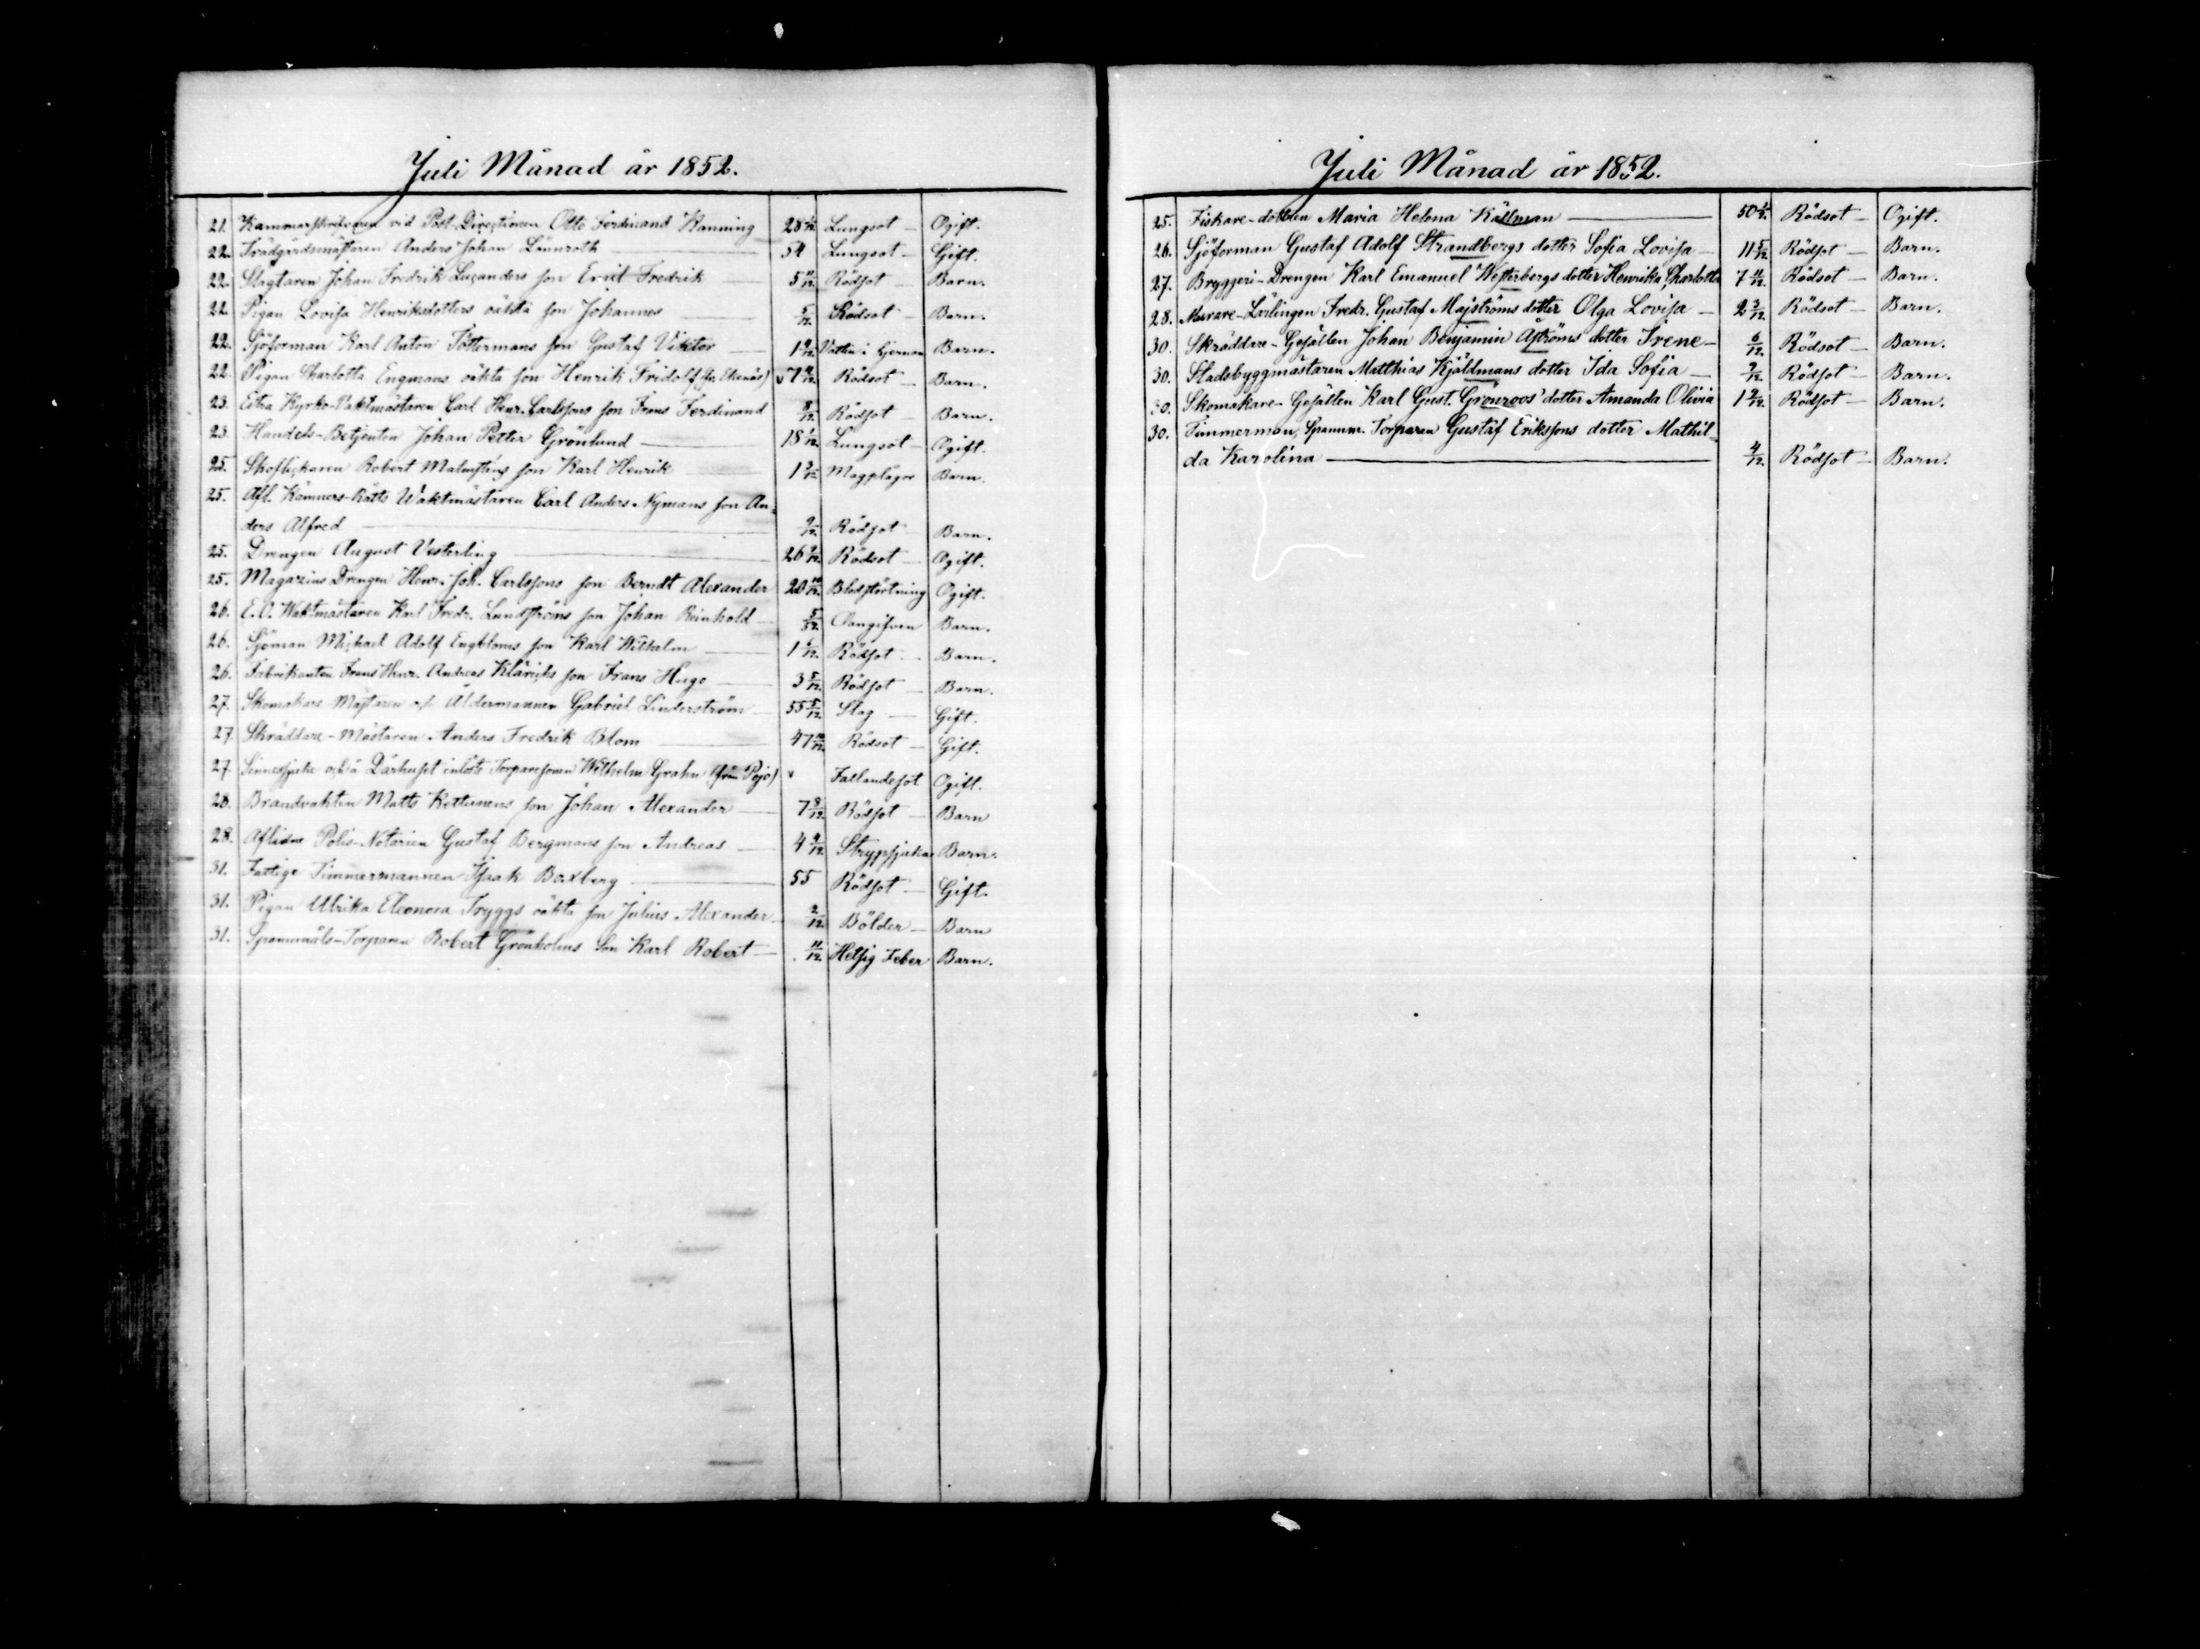 Juli Månad år 1852.
21. Kammarskrifvaren vid Post-Directionen Otto Ferdinand Konning 28 Lungsot - Ogift.
22. Trädgårdsmästaren Anders Johan Lönnroth 54 Lungsot - Gift.
22. Slagtaren Johan Fredrik Lucanders son Ervit Fredrik 5 11/12. Rödsot - Barn.
22. Pigan Lovisa Henriksdotters oäkta son Johannes 5/12. Rödsot - Barn.
22. Sjöforman Karl Anton Töttermans son Gustaf Viktor 1 9/12. Vatten i hjernan Barn.
22. Pigan Charlotta Engmans oäkta son Henrik Fridolf (fr. Ekenäs) 7 Rödsot - Barn.
23. Extra Kyrko-Vaktmästaren Carl Henr. Carlssons son Frans Ferdinand 8/12. Rödsot - Barn.
23. Handels-Betjenten Johan Petter Grönlund 18 Lungsot - Ogift.
25. Skoflickaren Robert Malmstens son Karl Henrik 1 Magplågor Barn.
25. Afl. Kämners-Rätts Waktmästaren Carl Anders Nymans son An-
ders Alfred 9/12. Rödsot Barn.
25. Drengen August Vesterling 26 Rödsot - Ogift.
25. Magazins Drengen Henr. Joh. Carlssons son Berndt Alexander 20 10/12. Blodstörtning Ogift.
26. E.O. Waktmästaren Karl Fredr. Lundströms son Johan Reinhold 5/52. Oangifven Barn.
26. Sjöman Michael Adolf Engbloms son Karl Wilhelm 1 Rödsot - Barn.
26. Fabrikanten Frans Henr. Andreas Klärichs son Frans Hugo 3 5/12. Rödsot - Barn.
27. Skomakare-Mästaren och Åldermannen Gabriel Linderström 55 5/12. Slag - Gift.
27. Skräddare-Mästaren Anders Fredrik Blom 47 10/12. Rödsot - Gift.
27. Sinnessjuke och å Dårhuset inlöste Torparesonen Wilhelm Grahn (från Pojo) Fallandesot Ogift.
28. Brandvakten Matts Kettunens son Johan Alexander 7 8/12. Rödsot - Barn
28. Aflidne Polis-Notarien Gustaf Bergmans son Andreas 4 9/12. Strypsjuka Barn.
31. Fattige Timmermannen Isaak Boxberg 55 Rödsot - Gift.
31. Pigan Ulrika Eleonora Tryggs oäkta son Julius Alexander 2/12 Bölder - Barn
31. Spannmåls-Torparen Robert Grönholms Son Karl Robert 11/12. Hetsig Feber Barn.
Juli Månad år 1852.
25. Fiskare-dottren Maria Helena Källman 50 Rödsot - Ogift.
26. Sjöforman Gustaf Adolf Strandbergs dotter Sofia Lovisa 11 5/12. Rödsot - Barn.
27. Bryggeri-Drengen Karl Emanuel Westerbergs dotter Henrika Charlotta 7 11/12. Rödsot - Barn.
28. Murare-Lärlingen Fredr. Gustaf Majströms dotter Olga Lovisa 2 3/12. Rödsot - Barn.
30. Skräddare-Gesällen Johan Benjamin Åströms dotter Irene 6/12. Rödsot - Barn.
30. Stadsbyggmästaren Matthias Kjäldmans dotter Ida Sofia 9/12. Rödsot - Barn.
30. Skomakare-Gesällen Karl Gust. Grönroos' dotter Amanda Olivia 1 Rödsot - Barn.
30. Timmerman, Spannm. Torparen Gustaf Erikssons dotter Mathil-
da Karolina 4/12. Rödsot - Barn.